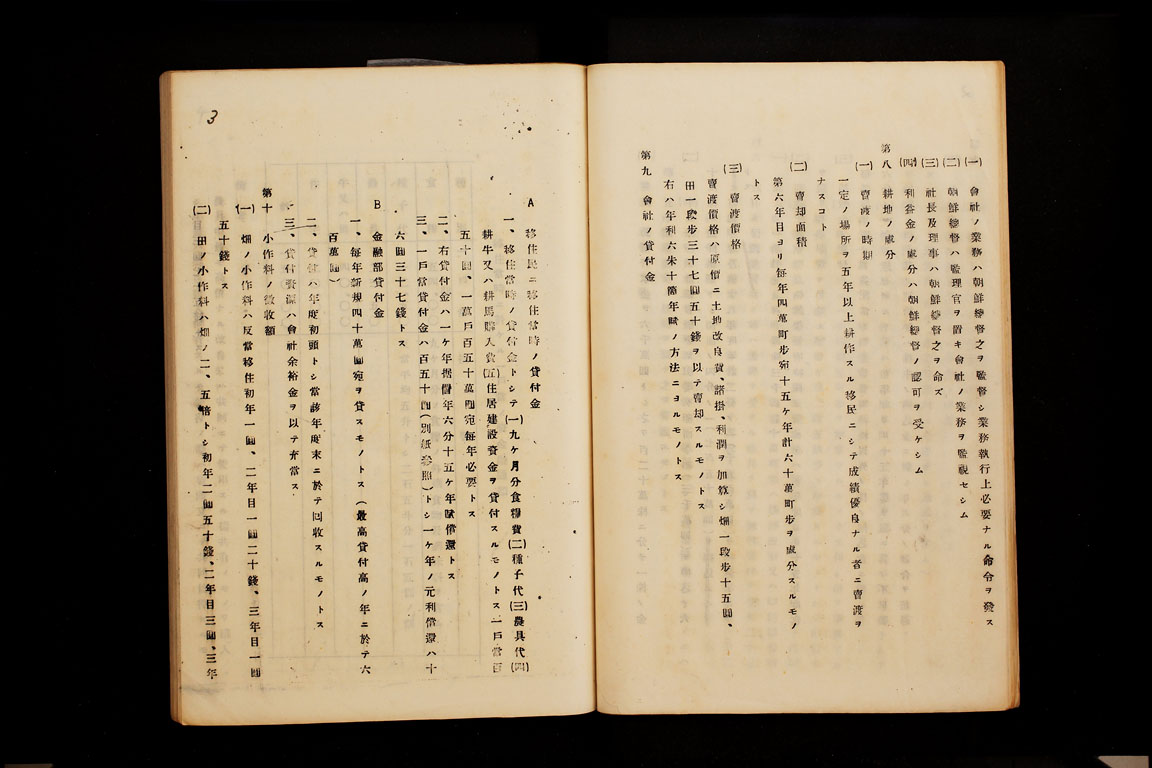 (一) 會社ノ業務ハ朝鮮總督之ヲ監督シ業務執行上必要ナル命令ヲ發ス
(二) 朝鮮總督ハ監理官ヲ置キ會社ノ業務ヲ監視セシム
(三) 社長及理事ハ朝鮮總督之ヲ命ズ
(四) 利益金ノ處分ハ朝鮮總督ノ認可ヲ受ケシム
第八 耕地ノ處分
(一) 賣渡ノ時期
一定ノ場所ヲ五年以上耕作スル移民ニシテ成績優良ナル者ニ賣渡ヲ
ナスコト
(二) 賣却面積
第六年目ヨリ每年四萬町步宛十五ケ年計六十萬町步ヲ處分スルモノ
トス
(三) 賣渡價格
賣渡價格ハ原價ニ土地改良費、諸掛、利潤ヲ加算シ畑一段步十五圓、
田一段步三十七圓五十錢ヲ以テ賣却スルモノトス
右ハ年利六朱十箇年賦ノ方法ニヨルモノトス
第九 會社ノ貸付金
3
A 移住民ニ移住當時ノ貸付金
一、移住當時ノ貸付金トシテ(一)九ケ月分食糧費(二)種子代(三)農具代(四)
耕牛又ハ耕馬購入費(五)住居建設資金ヲ貸付スルモノトス一戶當百
五十圓、一萬戶百五十萬圓宛每年必要トス
二、右貸付金ハ一ケ年据置年六分十五ケ年賦償還トス
三、一戶當貸付金ハ百五十圓(別紙參照)トシ一ケ年ノ元利償還ハ十
六圓三十七錢トス
B 金融部貸付金
一、每年新規四十萬圓宛ヲ貸スモノトス(最高貸付高ノ年ニ於テ六
百萬圓)
二、貸付ハ年度初頭トシ當該年度末ニ於テ回收スルモノトス
三、貸付資源ハ會社余裕金ヲ以テ充當ス
第十 小作料ノ徵收額
(一) 畑ノ小作料ハ反當移住初年一圓、二年目一圓二十錢、三年目一圓
五十錢トス
(二) 田ノ小作料ハ畑ノ二、五倍トシ初年二圓五十錢、二年目三圓、三年